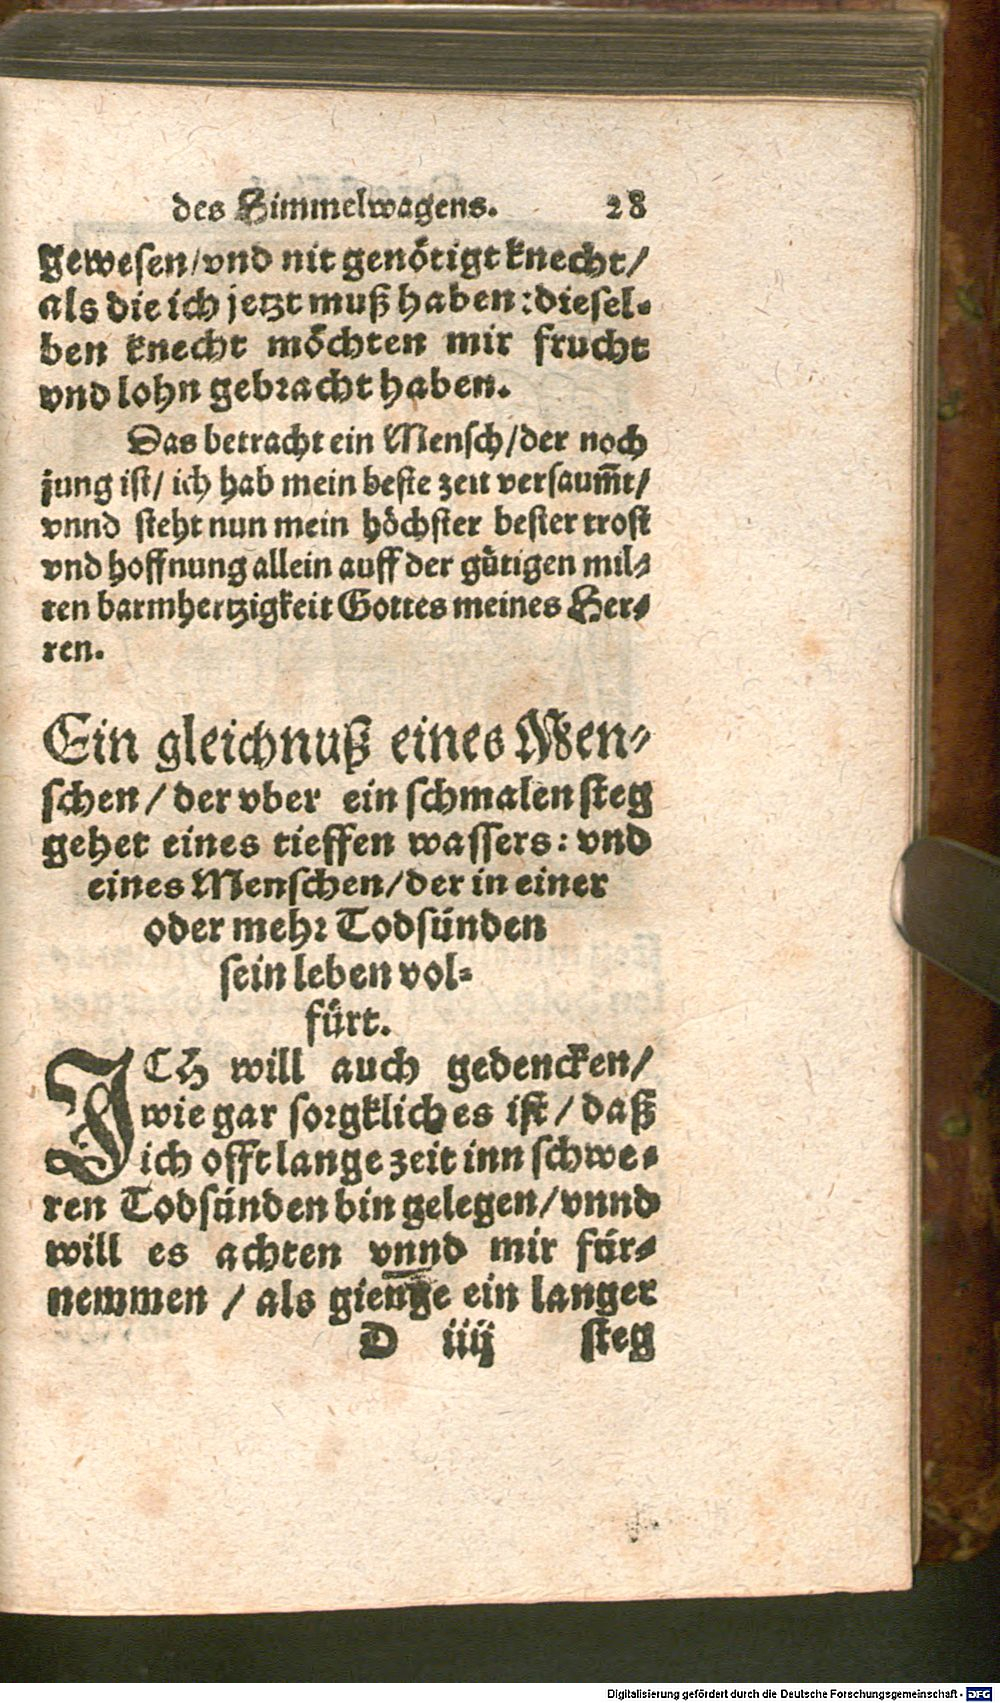 des Himmelwagens. 28
gewesen/vnd nit genötigt knecht/
als die ich jetzt muß haben: diesel-
ben knecht möchten mir frucht
vnd lohn gebracht haben.
Das betracht ein Mensch/der noch
jung ist/ ich hab mein beste zeit versaum̃t/
vnnd steht nun mein höchster bester trost
vnd hoffnung allein auff der gütigen mil-
ten barmhertzigkeit Gottes meines Her-
ren.
Ein gleichnuß eines Men-
schen/der vber ein schmalen steg
gehet eines tieffen wassers: vnd
eines Menschen/der in einer
oder mehr Todsünden
sein leben vol-
fürt.
ICH will auch gedencken/
wie gar sorgklich es ist/daß
ich offt lange zeit inn schwe-
ren Todsünden bin gelegen/vnnd
will es achten vnnd mir für-
nemmen/als gienge ein langer
D iiij steg
Digitalisierung gefördert durch die Deutsche Forschungsgemeinschaft - DFG